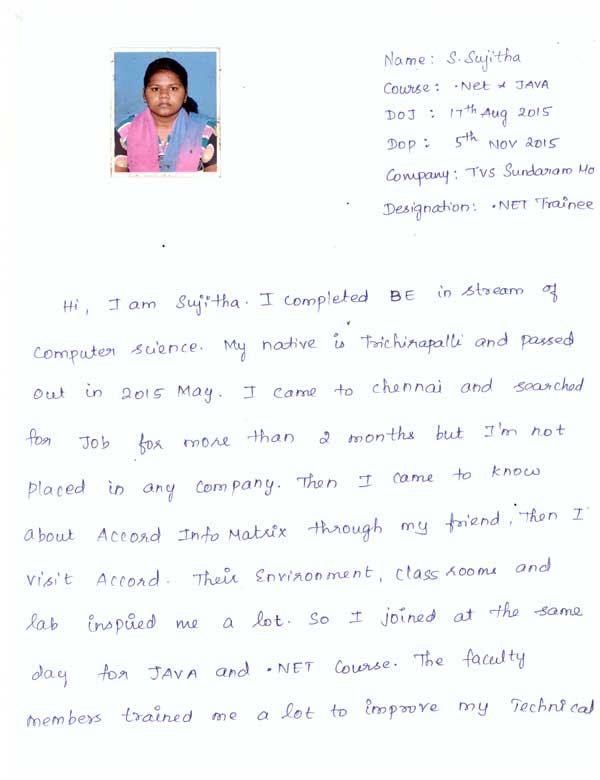 Name: S. Sujitha
Course: .Net & JAVA
DOJ : 17th Aug 2015
DOP : 5th NOV 2015
Company: TVS Sundaram Mo
Designation: .NET Trainee
Hi, I am Sujitha. I completed BE in stream of
Computer science. My native is Trichirapalli and passed
out in 2015 May. I came to chennai and searched
for Job for more than 2 months but I'm not
placed in any company. Then I came to know
about Accord Info Matrix through my friend, Then I
visit Accord. Their Environment, class rooms and
lab inspired me a lot. So I joined at the same
day for JAVA and .NET Course. The faculty
members trained me a lot to improve my Technical